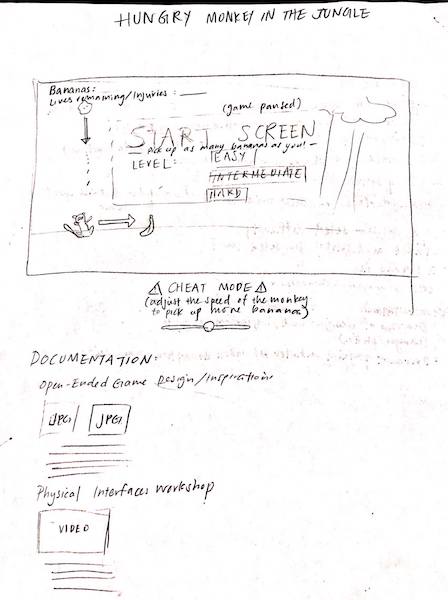 HUNGRY MONKEY IN THE JUNGLE
Bananas:
Lives remaining/injuries:
(game paused)
START SCREEN
– pick up as many bananas as you! –
LEVEL: EASY
INTERMEDIATE
HARD
⚠ CHEAT MODE ⚠
(adjust the speed of the monkey
to pick up more bananas)
DOCUMENTATION:
Open-Ended Game Design/Inspiration
JPG JPG
Physical Interfaces Workshop
VIDEO